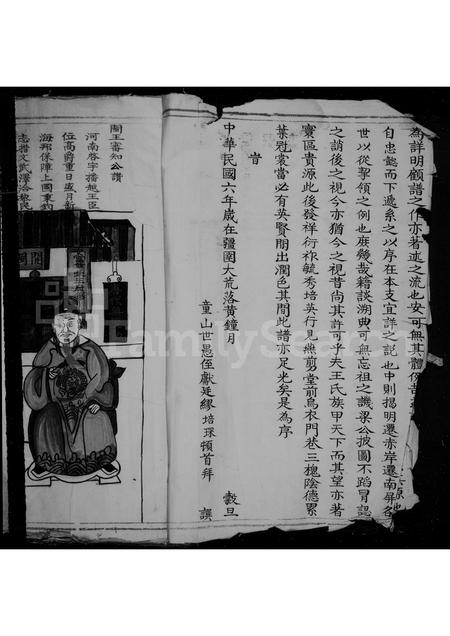 為詳明顧譜之作亦著述之流也安可無其體例
自忠懿而下遞系之以序在本支宜詳之說也中則揭明遷赤岸遷南屏名
世以從挈領之例也庶幾哉籍談溯典可無忘祖之譏梁公披圖不蹈冒認
之誚後之視今亦猶今之視昔尚其許可乎夫王氏族甲天下而其望亦著
寰區貴源此後發祥衍祚毓秀培英行見無剪堂前烏衣門巷三槐陰德累
葉冠裳當必有英賢朋出潤色其間此譜亦足光矣是為序
旹
中華民國六年歲在疆圉大荒落黃鐘月
穀旦
童山世愚侄獻廷繆培琛頓首拜
譔
閩王審知公讚
河南啓宇播越王臣
位高爵重日盛月新
海邦保障上國東鈞
志措文武澤洽黎民
FamilySearch